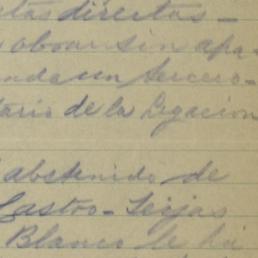 tas directas -
obrar sin apa-
nde un tercero-
tario de la Legacion
abstenido de
Castro - Seijas
Blanco le ha